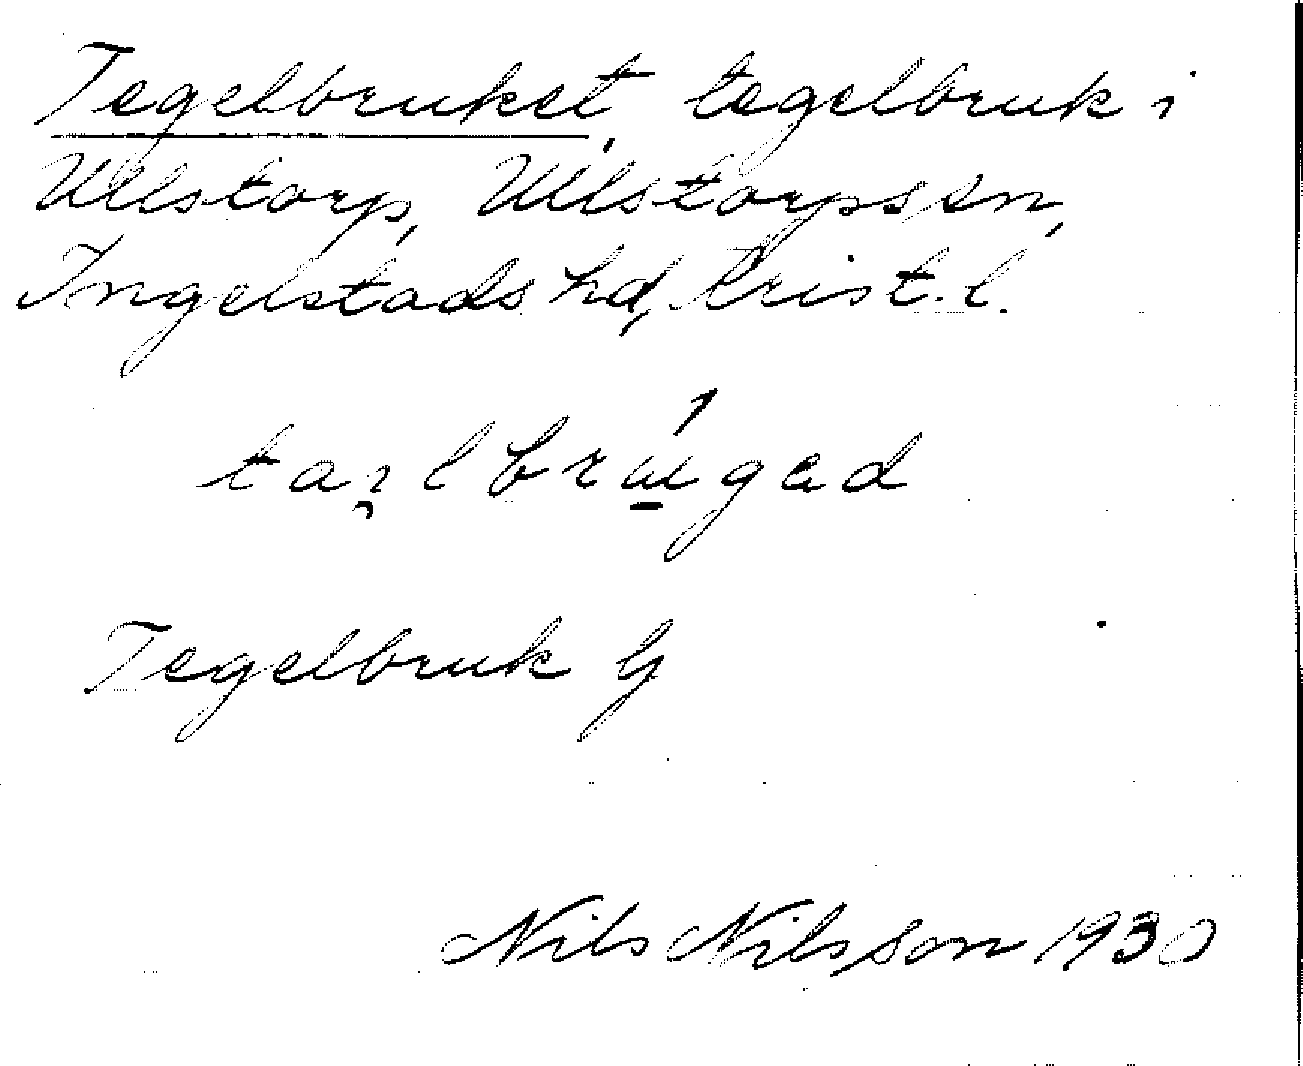 Tegelbruket, tegelbruk i
Ullstorp, Ullstorps sn,
Ingelstads hd, Krist. l.
tai̯lbrúgad
Tegelbruk G
Nils Nilsson 1930